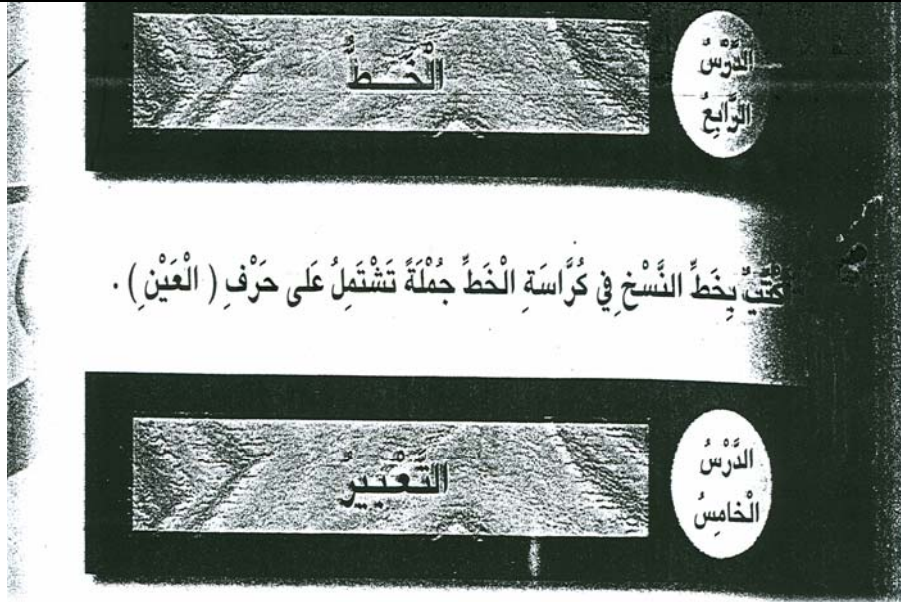 الدَّرْسُ
الرَّابِعُ
الْخَـطُّ
بِخَطِّ النَّسْخِ فِي كُرَّاسَةِ الْخَطِّ جُمْلَةً تَشْتَمِلُ عَلَى حَرْفِ ( الْعَيْنِ ) .
الدَّرْسُ
الْخَامِسُ
التَّعْبِيرُ